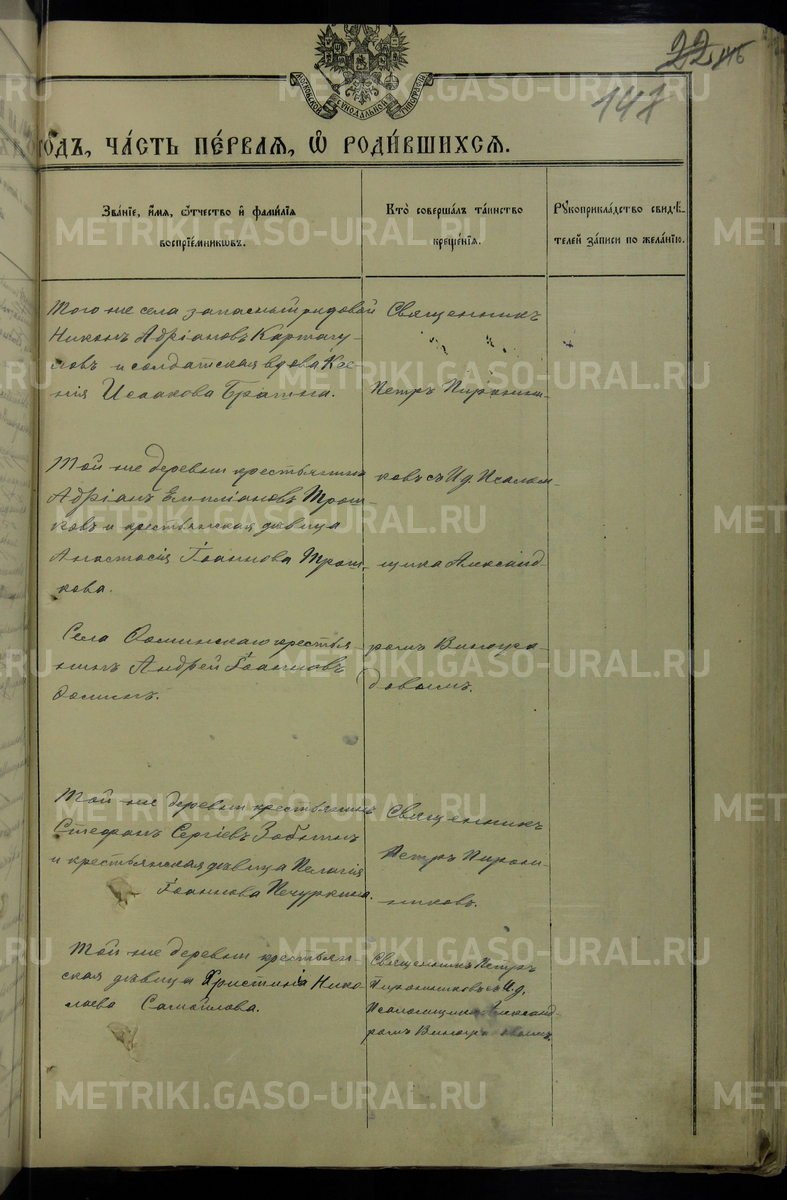 147
годъ, часть первая, ѡ родившихся.
Званіе, имя, ѿчество и фамилія
воспріемниковъ.
Кто совершалъ таинство
крещенія.
Рукоприкладство свидѣ-
телей записи по желанію.
Того же села запасный рядовой
Никонъ Адріановъ
и солдатская вдова Ксе-
нія Исаакова
Священникъ
Петръ Пирожни-
ковъ съ И.д. Псалом-
щика Александ-
ромъ Виногра-
довымъ.
Той же деревни крестьянинъ
Адріанъ Емиліановъ Трош-
ковъ и крестьянская дѣвица
Анастасія Іоаннова Трош-
кова.
Села Ѳоминскаго крестья-
нинъ Андрей Іоанновъ
Ѳоминъ.
Той же деревни крестьянинъ
Стефанъ Сергіевъ Забытинъ
и крестьянская дѣвица Пелагія
Іоаннова Печуркина.
Священникъ
Петръ Пирож-
никовъ.
Той же деревни крестьян-
ская дѣвица Христинія Нико-
лаева Самойлова.
Священникъ Петръ
Пирожниковъ съ И.д.
Псаломщика Александ-
ромъ Виноградовымъ.
METRIKI.GASO-URAL.RU